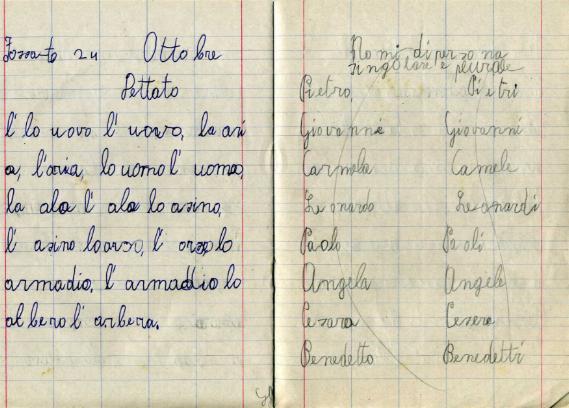 24 Ottobre
Dettato
l' lo uovo l' uovo, la ari
a, l'aria, lo uomo l' uomo,
la ala l' ala lo asino,
l' asino lo orso, l' orso, lo
armadio, l' armadio lo
albero l' arbera.
Nomi di persona
singolare e plurale
Pietro Pietri
Giovanni Giovanni
Carmela Camele
Leonardo Leonardi
Paolo Paoli
Angela Angele
Cesara Cesere
Benedetto Benedetti